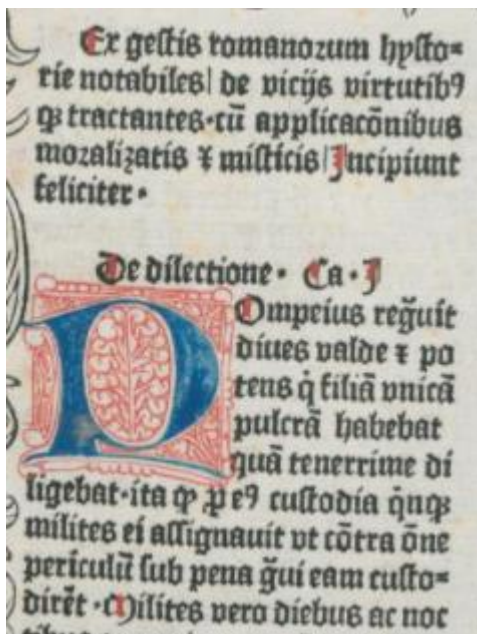 Ex gestis romanorum hysto=
rie notabiles| de vicijs virtutibꝰ
qꝫ tractantes·cū applicacōnibus
moralizatis ⁊ misticis|Incipiunt
feliciter·
De dilectione· Ca·I
POmpeius reg̃uit
diues valde ⁊ po
tens q̇ filiā vnicā
pulcrā habebat
quā tenerrime di
ligebat·ita ꝙ ꝓ eꝰ custodia q̇nqꝫ
milites ei assignauit vt cōtra ōne
periculū sub pena g̃ui eam custo=
dirēt·Milites vero diebus ac noc